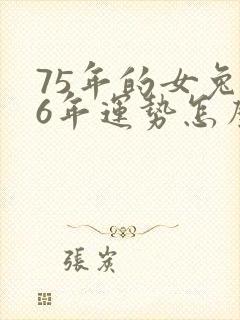 75年的女兔
6年運勢怎
張炭